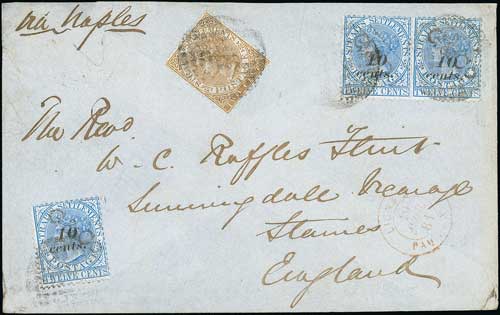 via Naples
STRAITS SETTLEMENTS
10
cents.
TWELVE CENTS
STRAITS SETTLEMENTS
10
cents.
TWELVE CENTS
The Revd
W. C. Raffles Flint
Sunningdale Vicarage
Staines
England
STRAITS SETTLEMENTS
10
cents.
POSTAGE
TWELVE CENTS
81
PAID